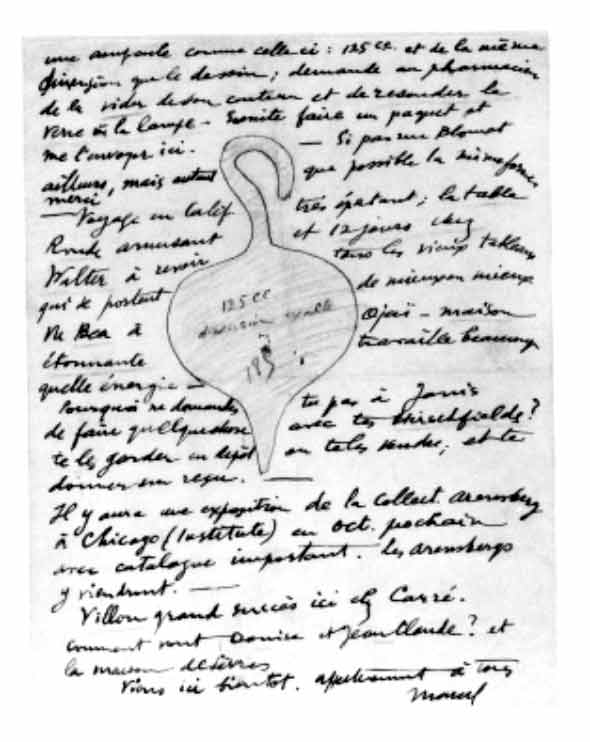 une ampoule comme celle ci : 125 cc. et de la même
dimension que le dessin ; demande au pharmacien
de la vider de son contenu et de resouder le
verre à la lampe - Ensuite faire un paquet et
me l'envoyer ici. — Si pas rue Blomet
ailleurs, mais autant que possible la même forme
merci
— Voyage en Calif. très épatant ; la table
Ronde amusante et 12 jours chez
Walter à revoir tous les vieux tableaux
qui se portent de mieux en mieux
Vu Bea à Ojaï - maison
étonnante travaille beaucoup
quelle énergie —
125 cc
dimension exacte
Pourquoi ne demandes tu pas à Janis
de faire quelquechose avec tes Hirschfields ?
te les garder en dépôt ou te les vendre ; et te
donner un reçu. —
Il y aura une exposition de la collect. Arensberg
à Chicago (Institute) en oct. prochain
avec catalogue important. les Arensbergs
y viendront. —
Villon grand succès ici chez Carré.
comment vont Denise et Jean Claude ? et
la maison de Sèvres
Viens ici bientôt. affectueusement à tous
Marcel